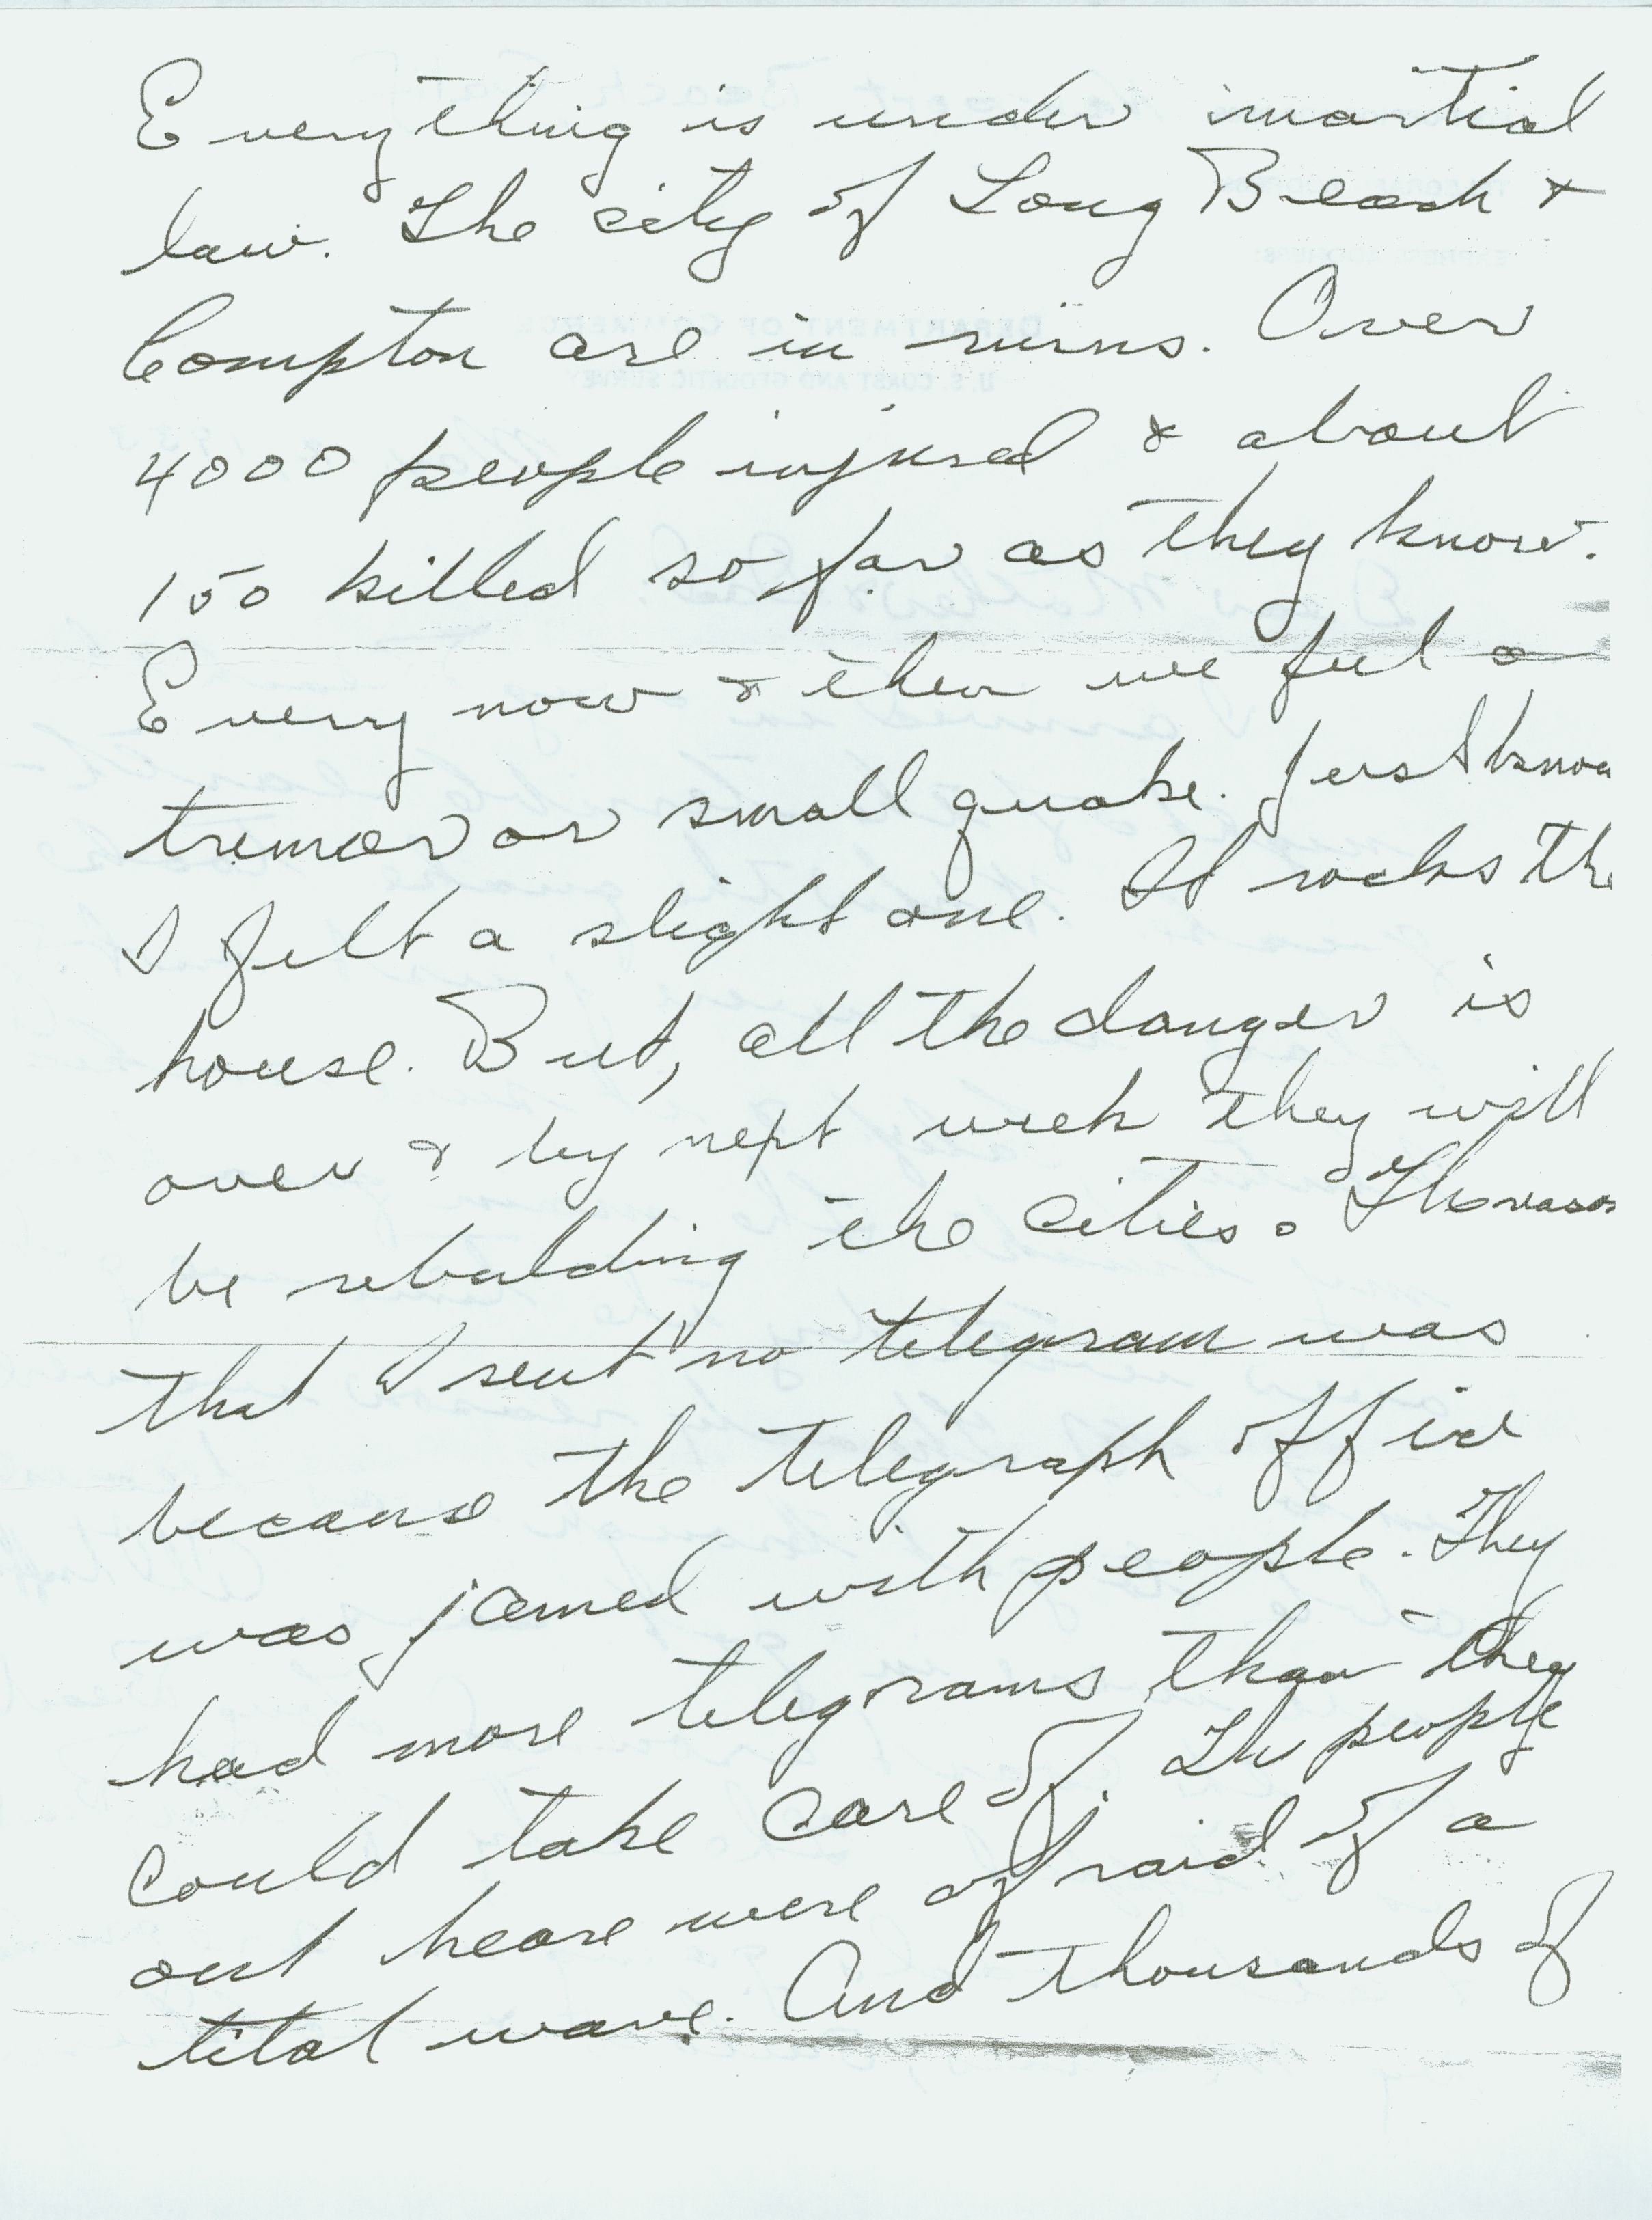 Everything is under martial
law. The city of Long Beach &
Compton are in ruins. Over
4000 people injured & about
150 killed so far as they know.
Every now & then we feel a
tremor or small quake. Just know
I felt a slight one. It rocks the
house. But, all the danger is
over & by next week they will
be rebulding the cities. The reason
that I sent no telegram was
because the telegraph office
was jamed with people. They
had more telegrams than they
could take care of. The people
out heare were afraid of a
tital wave. And thousands of